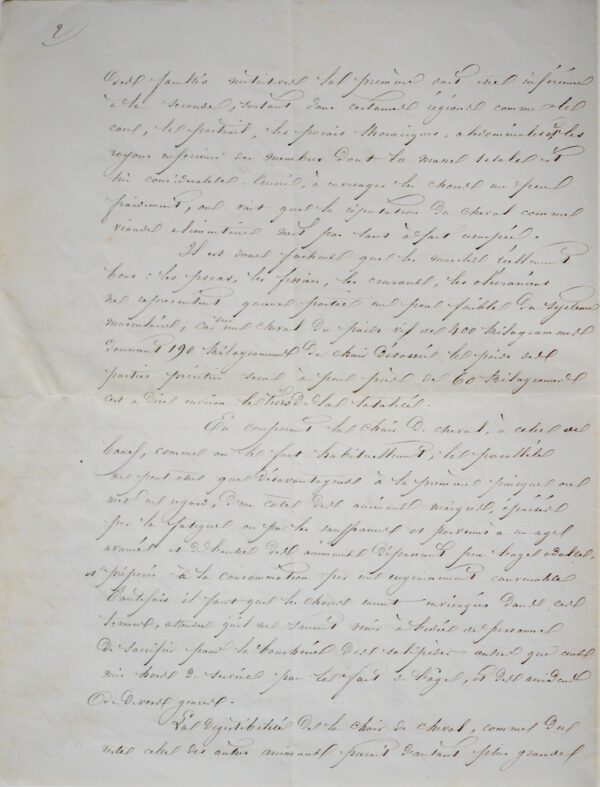 2
à la seconde, surtout dans certaines régions comme le
cou, le poitrail, les parois thoraciques, abdominales et les
rayons inférieurs des membres dont la masse totale est
très considérable. Aussi, à envisager les choses un peu
froidement, on voit que la réputation du cheval comme
viande alimentaire n'est pas tout à fait usurpée.
Il est donc que les muscles réellement
bons : les psoas, les fessiers, les cruraux, les olécraniens
ne représentent qu'une partie un peu faible du système
musculaire, car sur un cheval du poids vif de 400 Kilogrammes
donnant 190 Kilogrammes de chair désossée le poids des
parties précitées serait à peu près de 60 Kilogrammes
c'est à dire environ le tiers de la totalité.
En comparant la chair de cheval, à celle de
boeuf, comme on le fait habituellement, le parallèle
ne peut être que désavantageux à la première puisque on
met en regard, d'un côté des animaux maigres, épuisés
par la fatigue ou par les souffrances et parvenus à un âge
avancé et de l'autre des animaux dépassant peu l'âge adulte,
et préparés à la consommation par un engraissement convenable
Toutefois il faut que les choses soient envisagées dans ce
sens, attendu qu'il ne saurait venir à l'idée de personne
de sacrifier pour la boucherie des solipèdes autres que ceux
mis hors de service par le fait de l'âge, et des accidents
de divers genres.
La digestibilité de la chair de cheval, comme du
reste celle des autres animaux paraît d'autant plus grande